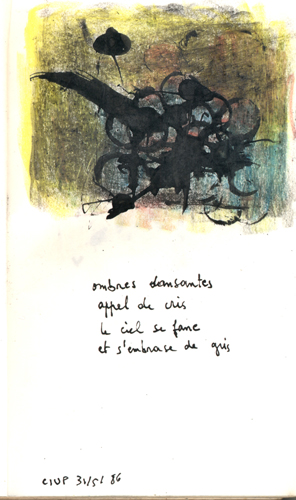 ombres dansantes
appel de cris
le ciel se fane
et s'embrase de gris
CIUP 31/5/86